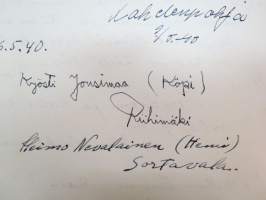 Lahdenpohja
2/5.-40
6.5.40.
Kyösti Jousimaa (Köpi)
Riihimäki
Heimo Nevalainen (Hemi)
Sortavala..